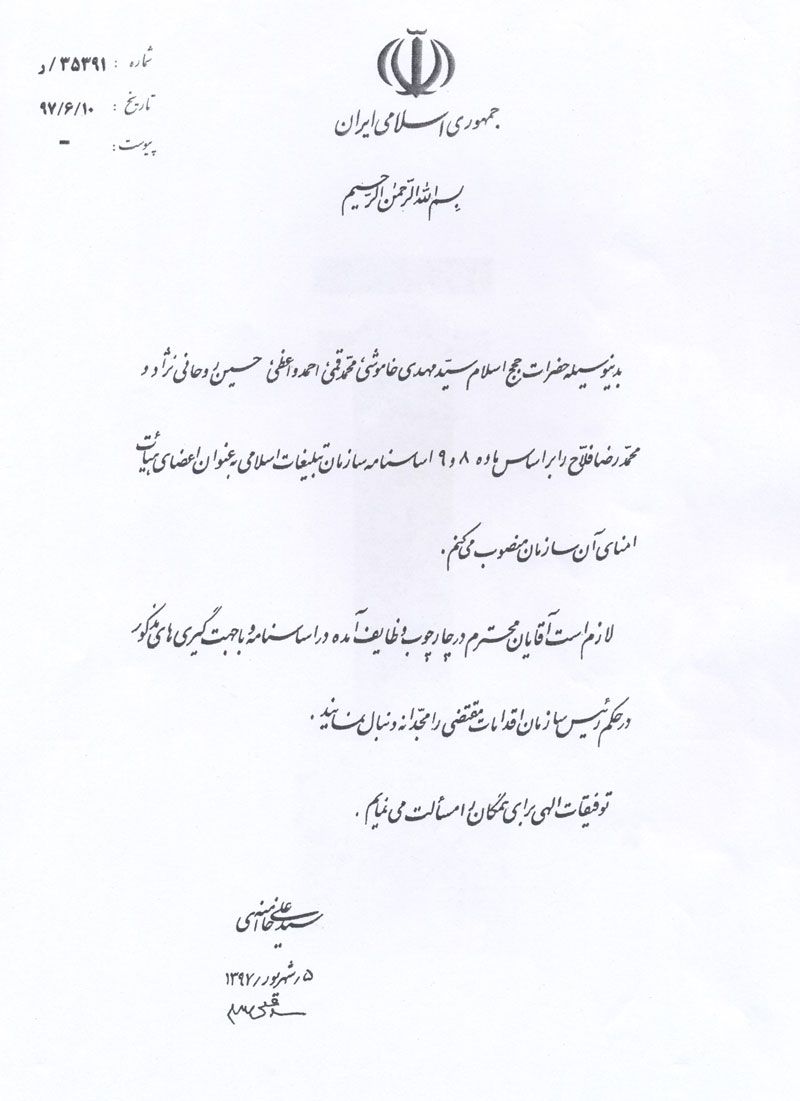 شماره : ۳۵۳۹۱/د
تاریخ : ۹۷/۶/۱۰
پیوست : -
جمهوری اسلامی ایران
بسم الله الرّحمن الرّحیم
بدینوسیله حضرات حجج اسلام سیّد مهدی خاموشی، محمّد قمی، احمد واعظی، حسین روحانی نژاد و
محمّدرضا فلّاح را بر اساس ماده ۸ و ۹ اساسنامه سازمان تبلیغات اسلامی به عنوان اعضای هیأت
امنای آن سازمان منصوب می‌کنم.
لازم است آقایان محترم در چارچوب وظایف آمده در اساسنامه و با جهت‌گیری‌های مذکور
در حکم رئیس سازمان اقدامات مقتضی را مجدّانه دنبال نمایند.
توفیقات الهی برای همگان را مسألت می‌نمایم.
سیّد علی خامنه‌ای
۵/شهریور/۱۳۹۷